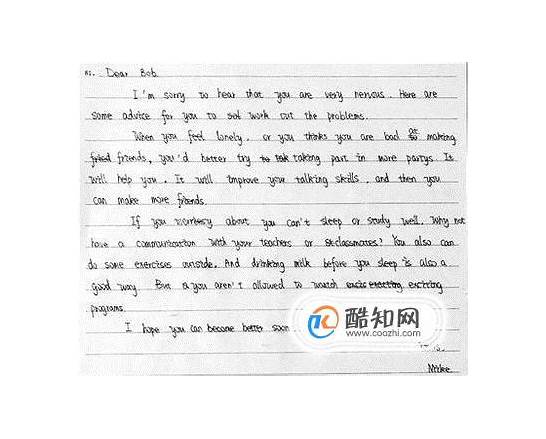 Dear Bob
I'm sorry to hear that you are very nervous. Here are
some advice for you to sol work out the problems.
When you feel lonely, or you thinks you are bad at making
friends, you'd better try taking part in more partys. Is
will help you. It will improve your talking skills, and then you
can make more friends
If you worry about you can't sleep or study well. Why not
have a communication with your teachers or classmates? You also can
do some exercises outside. And drinking milk before you sleep is also a
good way. But you aren't allowed to watch exciting
programs.
I hope you can become better soon
酷知网
www.coozhi.com